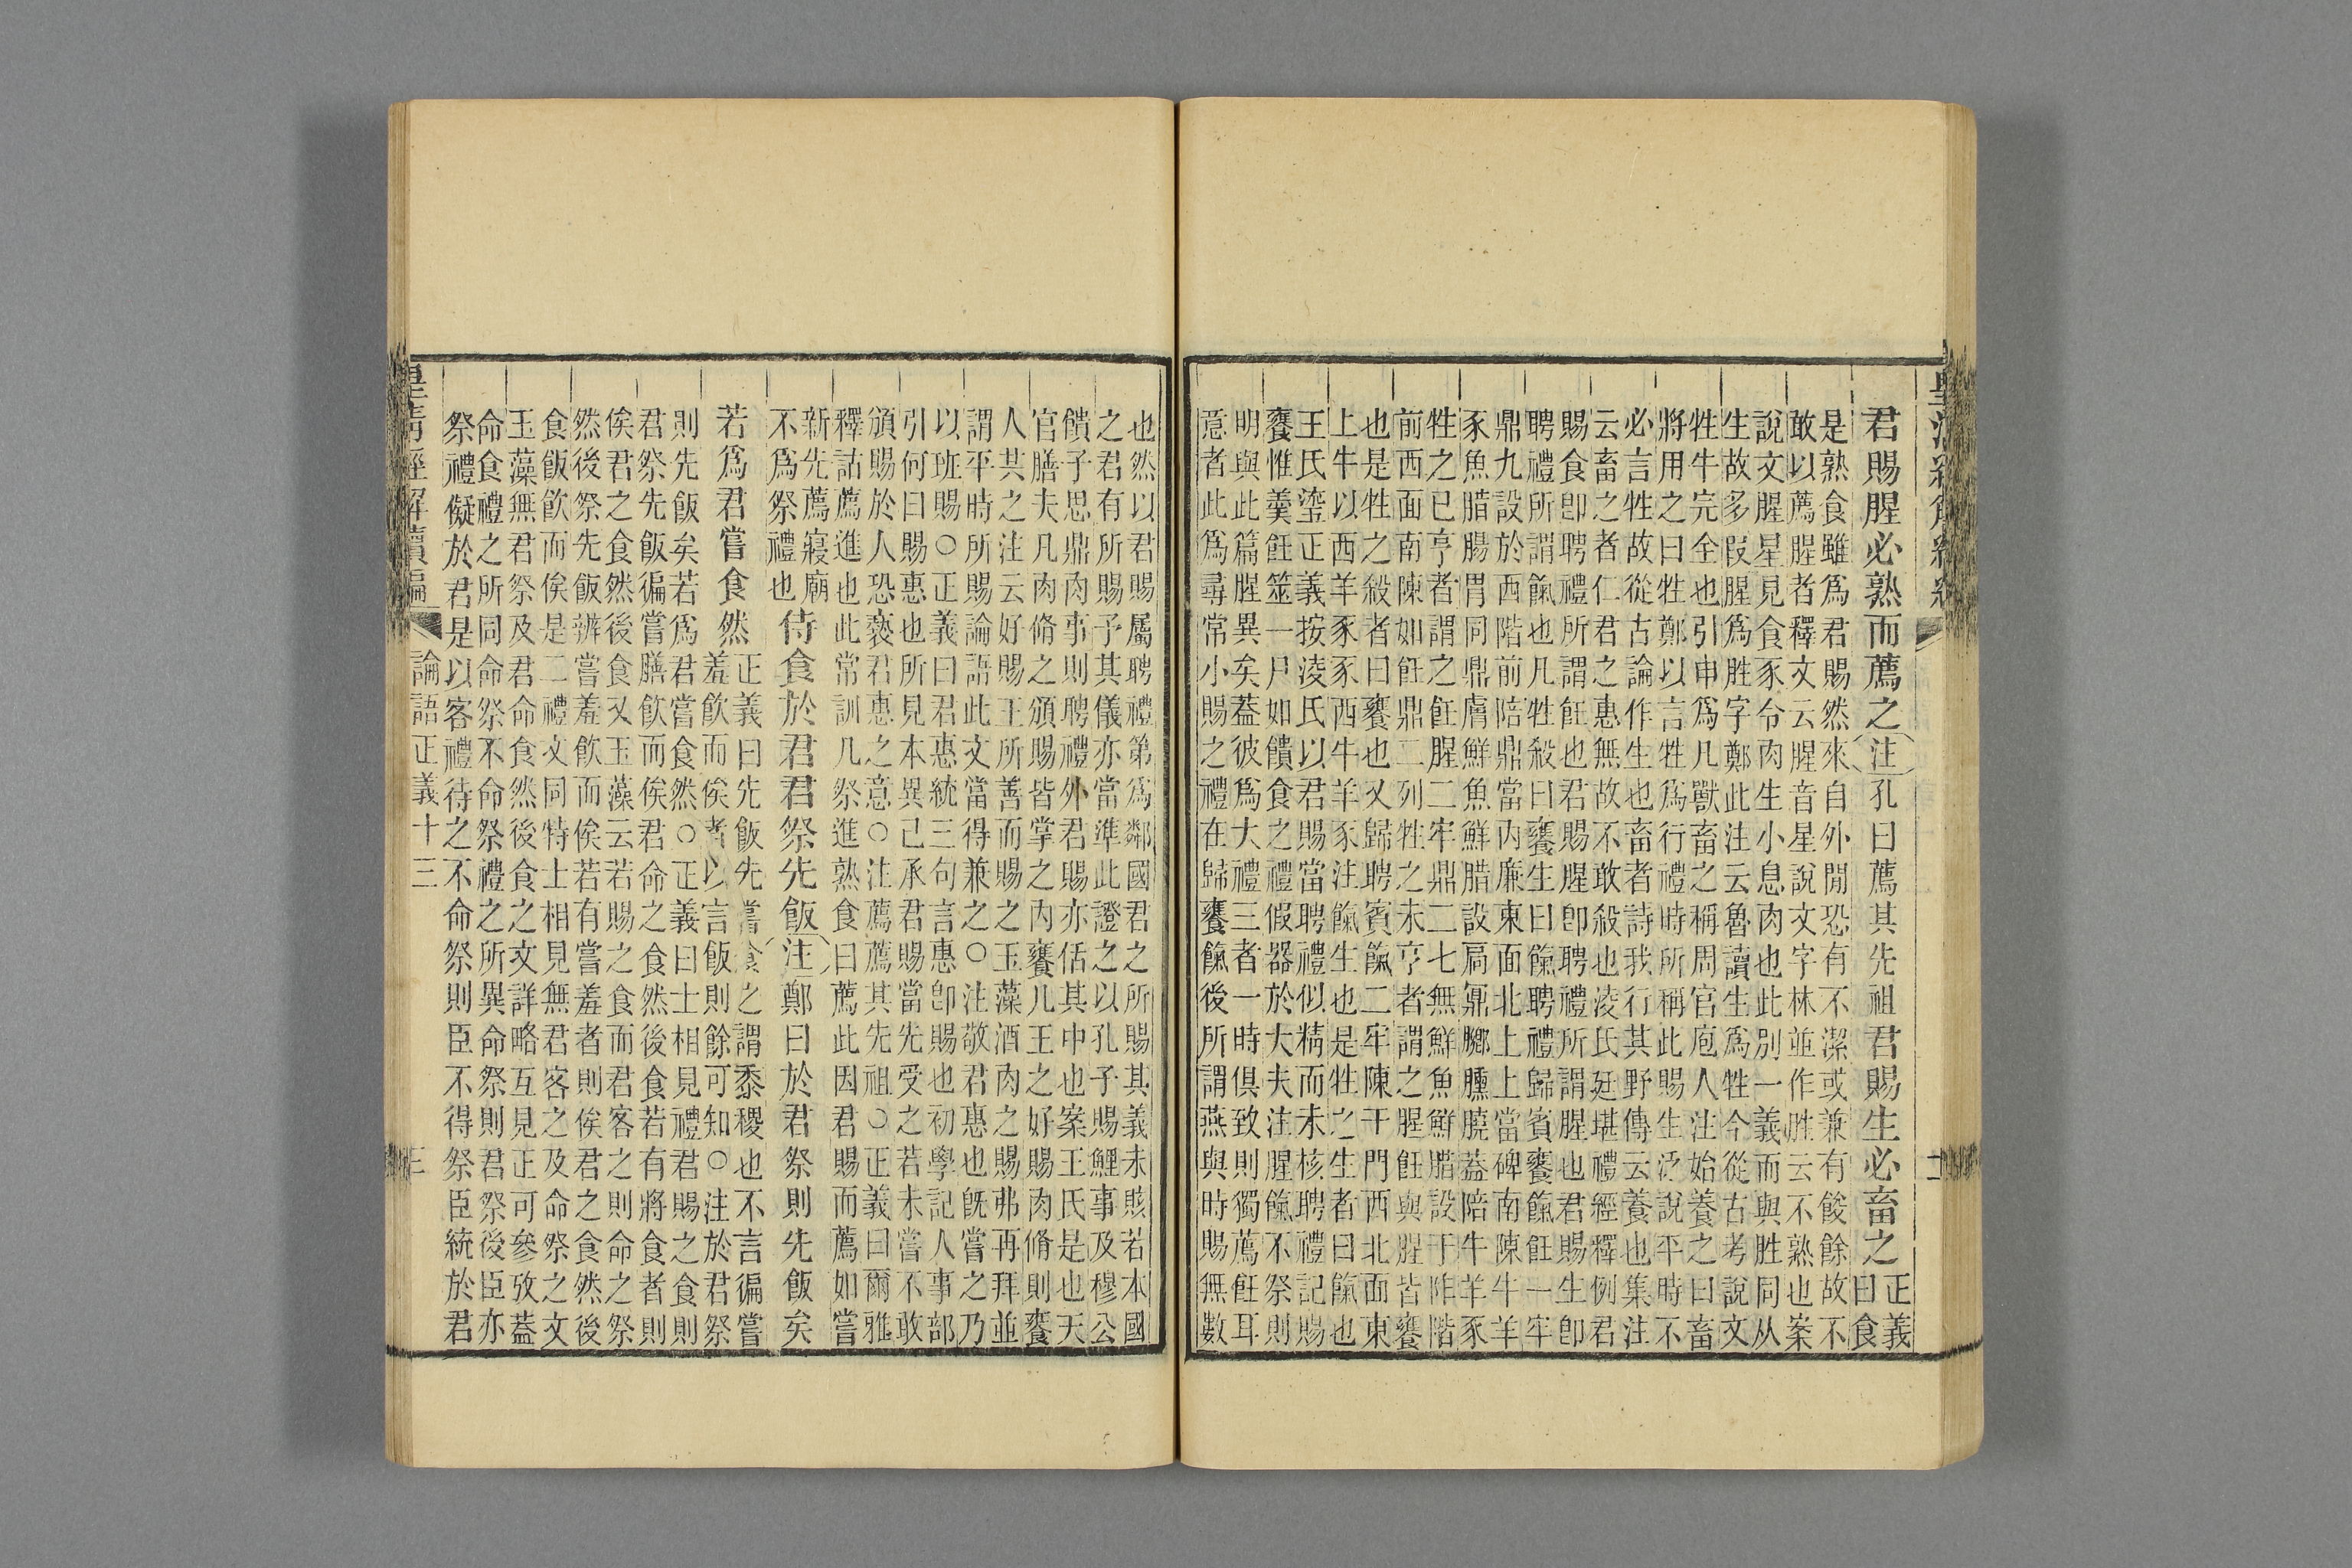 君賜腥必熟而薦之注孔曰薦其先祖君賜生必畜之正義
曰食
是熟食雖爲君賜然來自外閒恐有不潔或兼有餕餘故不
敢以薦腥者釋文云腥音星說文字林並作胜云不熟也案
說文腥星見食豕令肉生小息肉也此別一義而與胜同从
生故多叚腥爲胜字鄭此注云魯讀生爲牲今從古考說文
牲牛完全也引申爲凡獸畜之稱周官庖人注始養之曰畜
將用之曰牲鄭以言牲爲行禮時所稱此賜生泛說平時不
必言牲故從古論作生也畜者詩我行其野傳云養也集注
云畜之者仁君之惠無故不敢殺也淩氏廷堪禮經釋例君
賜食卽聘禮所謂飪也君賜腥卽聘禮所謂腥也君賜生卽
聘禮所謂餼也凡牲殺曰饔生曰餼聘禮歸賓饔餼飪一牢
鼎九設於西階前陪鼎當內廉東面北上上當碑南陳牛羊
豕魚腊腸胃同鼎膚鮮魚鮮腊設扃鼏膷臐膮蓋陪牛羊豕
牲之已亨者謂之飪腥二牢鼎二七無鮮魚鮮腊設于阼階
前西面南陳如飪鼎二列牲之未亨者謂之腥飪與腥皆饔
也是牲之殺者曰饔也又歸聘賓餼二牢陳于門西北面東
上牛以西羊豕豕西牛羊豕注餼生也是牲之生者曰餼也
王氏瑬正義按淩氏以君賜當聘禮似精而未核聘禮記賜
饔惟羹飪筮一尸如饋食之禮假器於大夫注腥餼不祭則
明與此篇腥異矣葢彼爲大禮三者一時俱致則獨薦飪耳
意者此爲尋常小賜之禮在歸饔餼後所謂燕與時賜無數
也然以君賜屬聘禮第爲鄰國君之所賜其義未賅若本國
之君有所賜予其儀亦當準此證之以孔子賜鯉事及穆公
饋子思鼎肉事則聘禮外君賜亦佸其中也案王氏是也天
官膳夫凡肉脩之頒賜皆掌之內饔凡王之好賜肉脩則饔
人共之注云好賜王所善而賜之玉藻酒肉之賜弗再拜並
謂平時所賜論語此文當得兼之○注敬君惠也旣嘗之乃
以班賜○正義曰君惠統三句言惠卽賜也初學記人事部
引何曰賜惠也所見本異己承君賜當先受之若未嘗不敢
頒賜於人恐褻君惠之意○注薦薦其先祖○正義曰爾雅
釋詁薦進也此常訓凡祭進熟食曰薦此因君賜而薦如嘗
新先薦寢廟
不爲祭禮也侍食於君君祭先飯注鄭曰於君祭則先飯矣
若爲君嘗食然正義曰先飯先嘗食之謂黍稷也不言徧嘗
羞飲而俟者以言飯則餘可知○注於君祭
則先飯矣若爲君嘗食然○正義曰士相見禮君賜之食則
君祭先飯徧嘗膳飲而俟君命之食然後食若有將食者則
俟君之食然後食又玉藻云若賜之食而君客之則命之祭
然後祭先飯辨嘗羞飲而俟若有嘗羞者則俟君之食然後
食飯飲而俟是二禮文同特士相見無君客之及命祭之文
玉藻無君祭及君命食然後食之文詳略互見正可參攷葢
命食禮之所同命祭不命祭禮之所異命祭則君祭後臣亦
祭禮儗於君是以客禮待之不命祭則臣不得祭臣統於君
皇清經解續編
論語正義十三
三